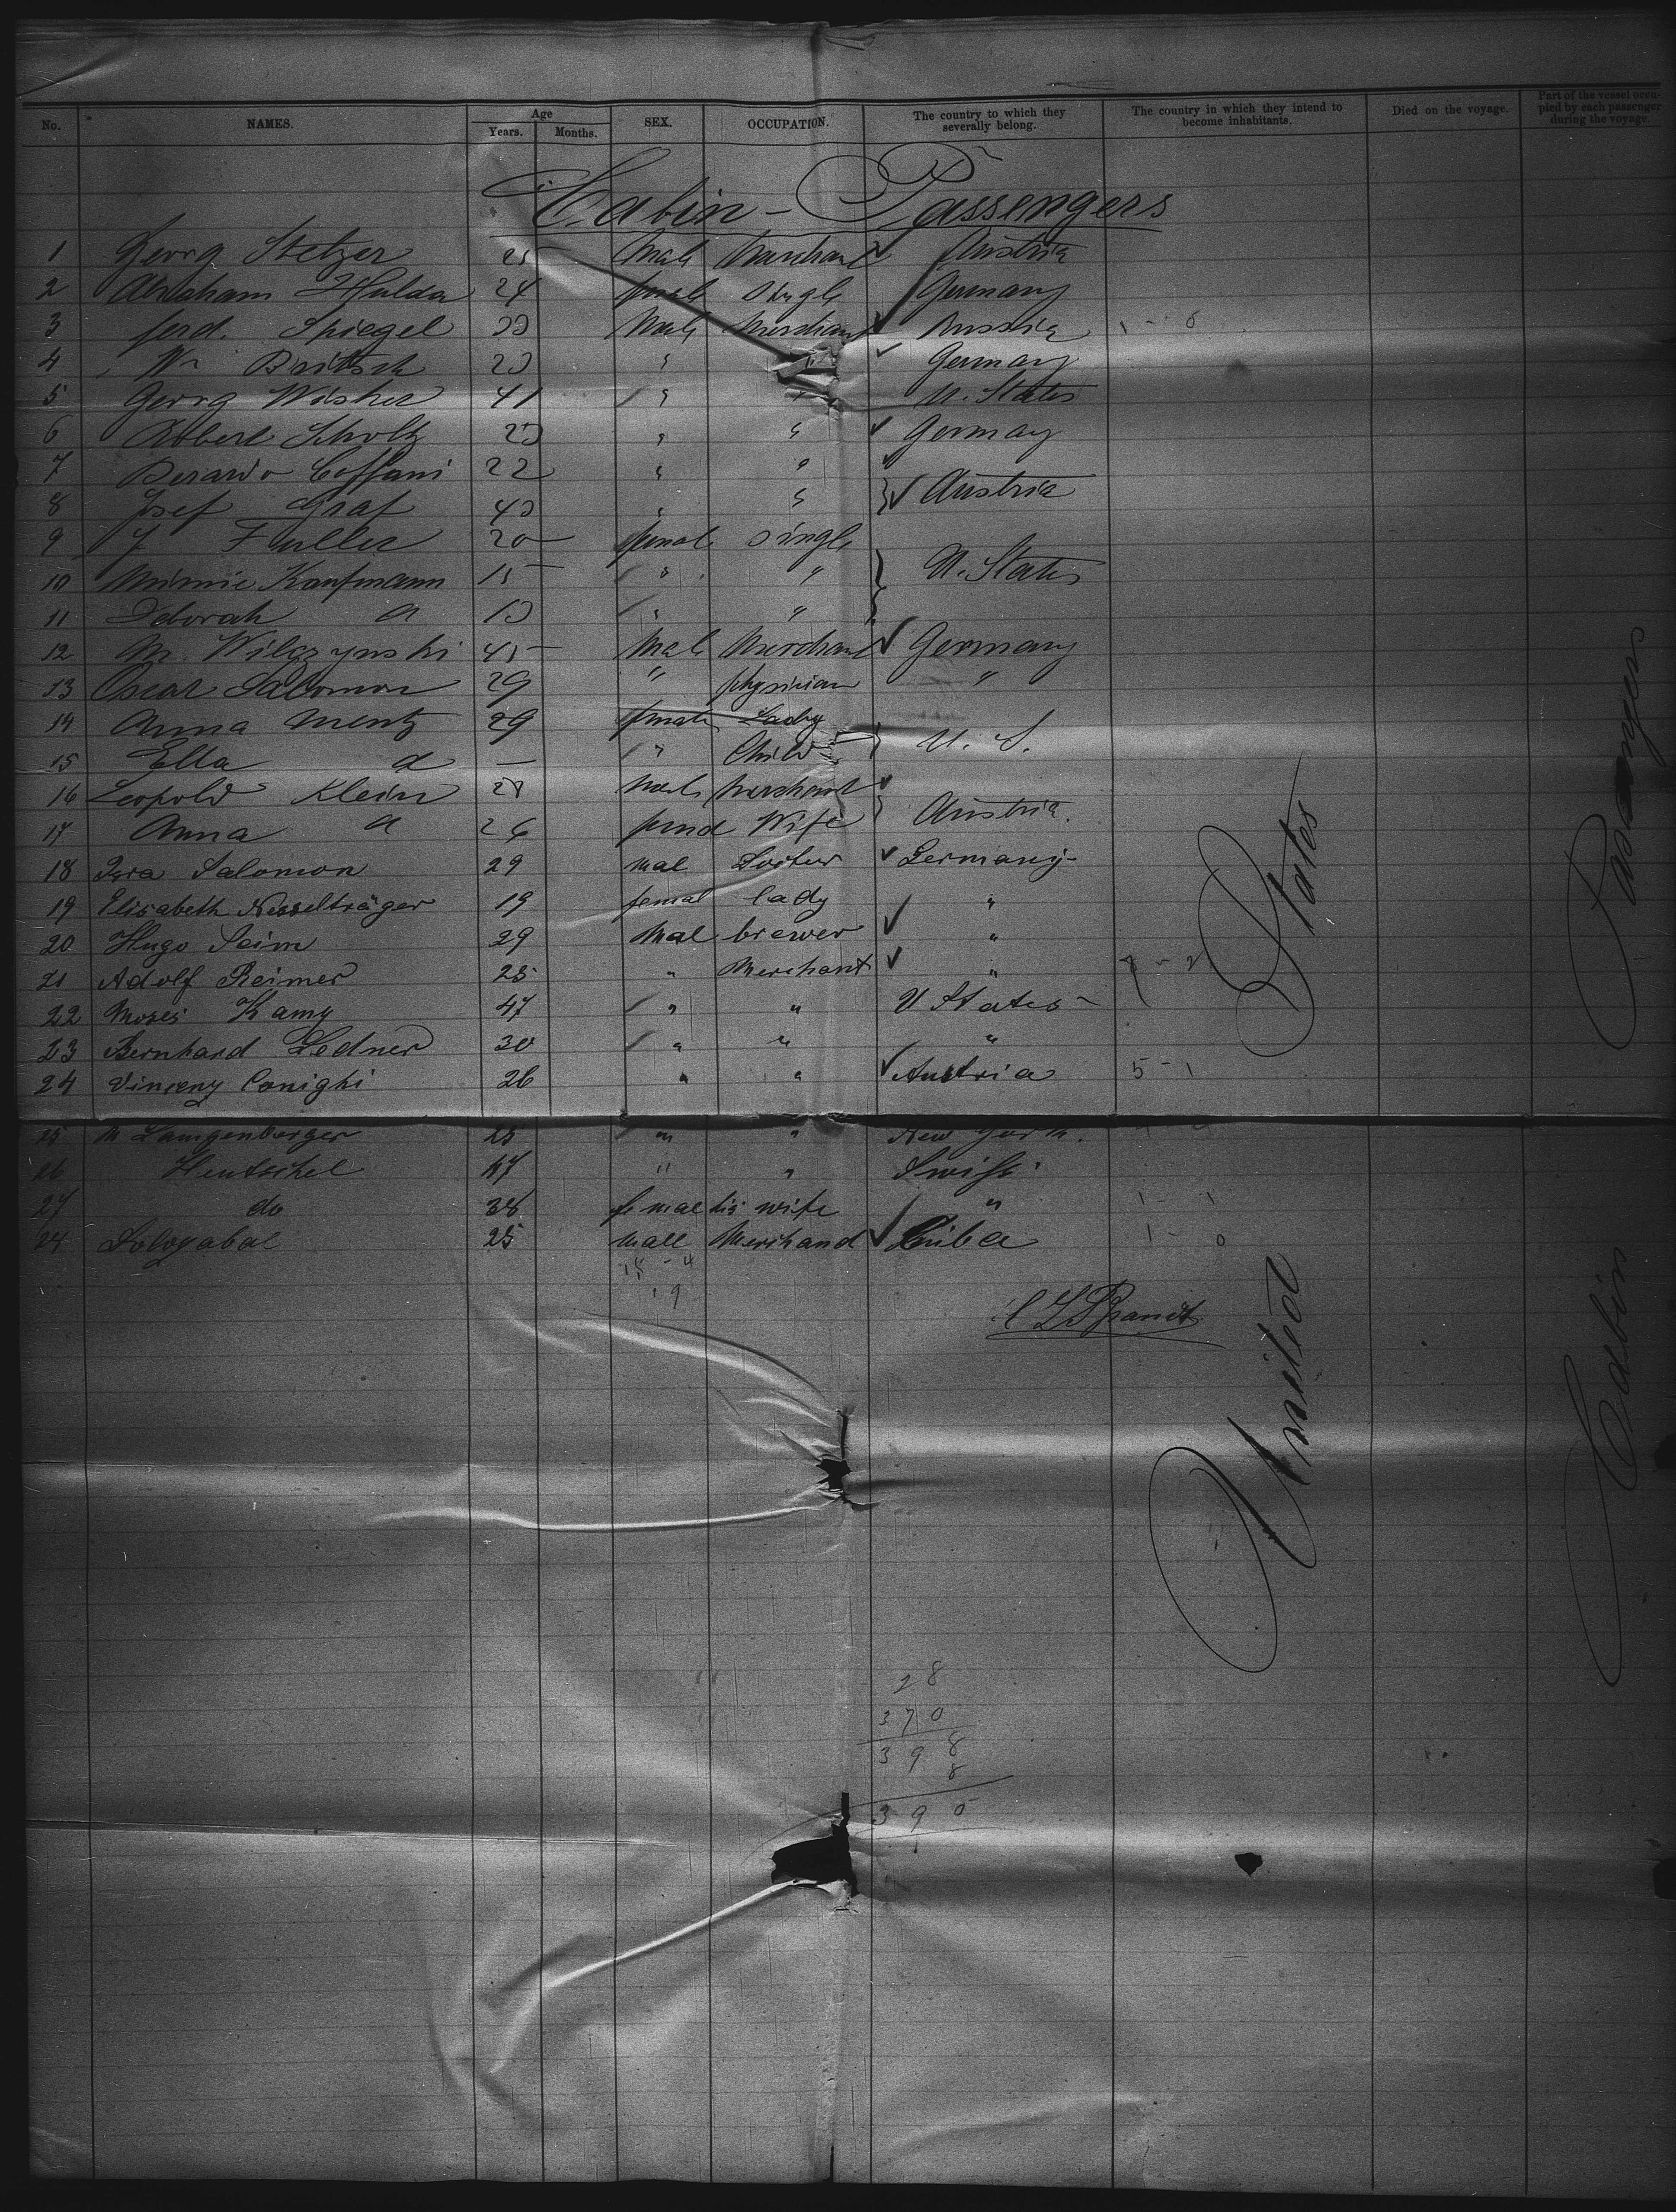 No. NAMES. Age Years. Months. SEX. OCCUPATION. The country to which they severally belong. The country in which they intend to become inhabitants. Died on the voyage. Part of the vessel occupied by each passenger during the voyage.
Cabin - Passengers
1 Georg Stelzer 25 Male Merchant Austria
2 Abraham Hulda 24 female Single Germany
3 ferd. Spiegel 33 Male Merchant Russia
4 Wm Britsch 23 " " Germany
5 Georg Wischer 41 " " U. States
6 Robert Scholtz 23 " " Germany
7 Berardo Coffani 22 " "
8 Josef Graf 43 " " Austria
9 J Fuller 20 female Single
10 Minnie Kaufmann 15 " " U. States
11 Deborah do 13 " "
12 M. Wilczynski 45 Male Merchand Germany
13 Oscar Salomon 29 " physician "
14 Anna Mentz 29 female Lady
15 Ella do — " Child U. S.
16 Leopold Klein 28 male Merchant
17 Anna do 26 femal Wife Austria.
18 Salomon 29 mal Doctor Germany
19 Elisabeth Nesselträger 19 femal lady "
20 Hugo Seim 29 Mal brewer "
21 Adolf Reimer 25 " Merchant "
22 Moses Kamy 47 " " U States
23 Bernhard Ledner 30 " " "
24 Vinceny Conighi 26 " " Austria 5 - 1
25 M Langenberger 25 " " New York.
26 Hentschel 47 " " Swiss
27 do 38 female his wife " 1 - 1
24 Sologabal 25 male Merchand Cuba 1 - 0
18 - 4
19
C L Brandt
United States
Cabin Passengers
28
370
398
8
390